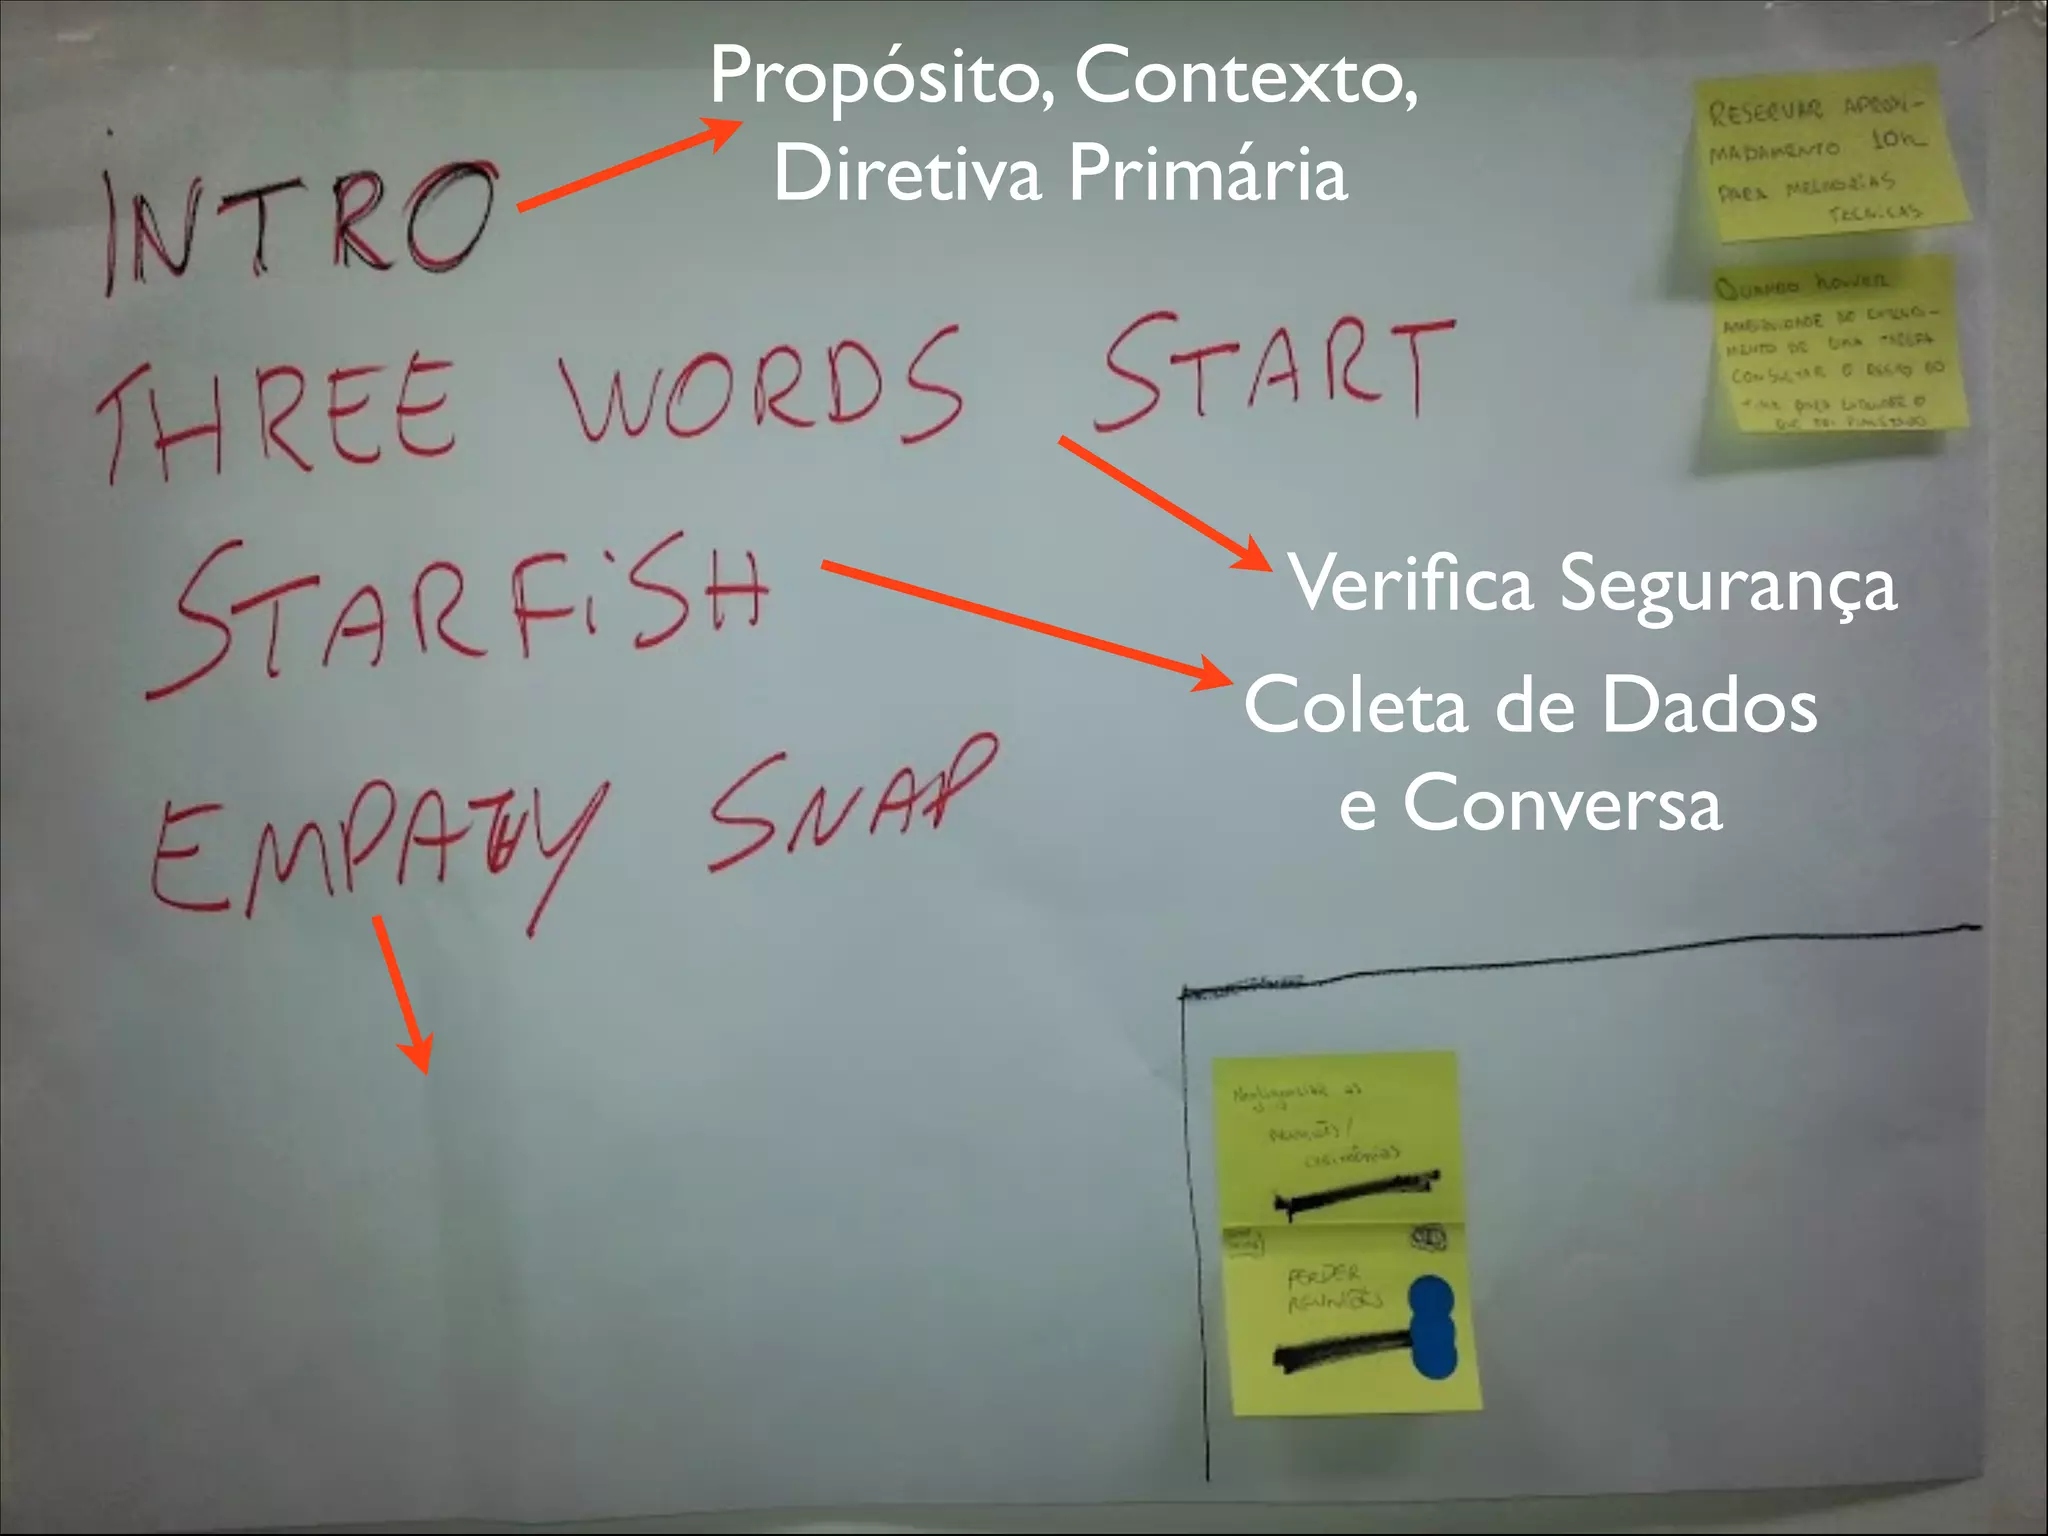 Propósito, Contexto,
Diretiva Primária
INTRO
THREE WORDS START
Verifica Segurança
STARFiSH
Coleta de Dados
e Conversa
EMPATHY SNAP
RESERVAR APROXI-
MADAMENTO 10h
PARA MELHORIAS
TECNICAS
QUANDO houver
AMBIGUIDADE DE ENTENDI-
MENTO DE UMA TAREFA
CONSULTAR O RESTO DO
TIME PARA
QUE FOI PLANEJADO
Negligenciar as
reuniões/
cerimônias
PERDER
REUNIÕES